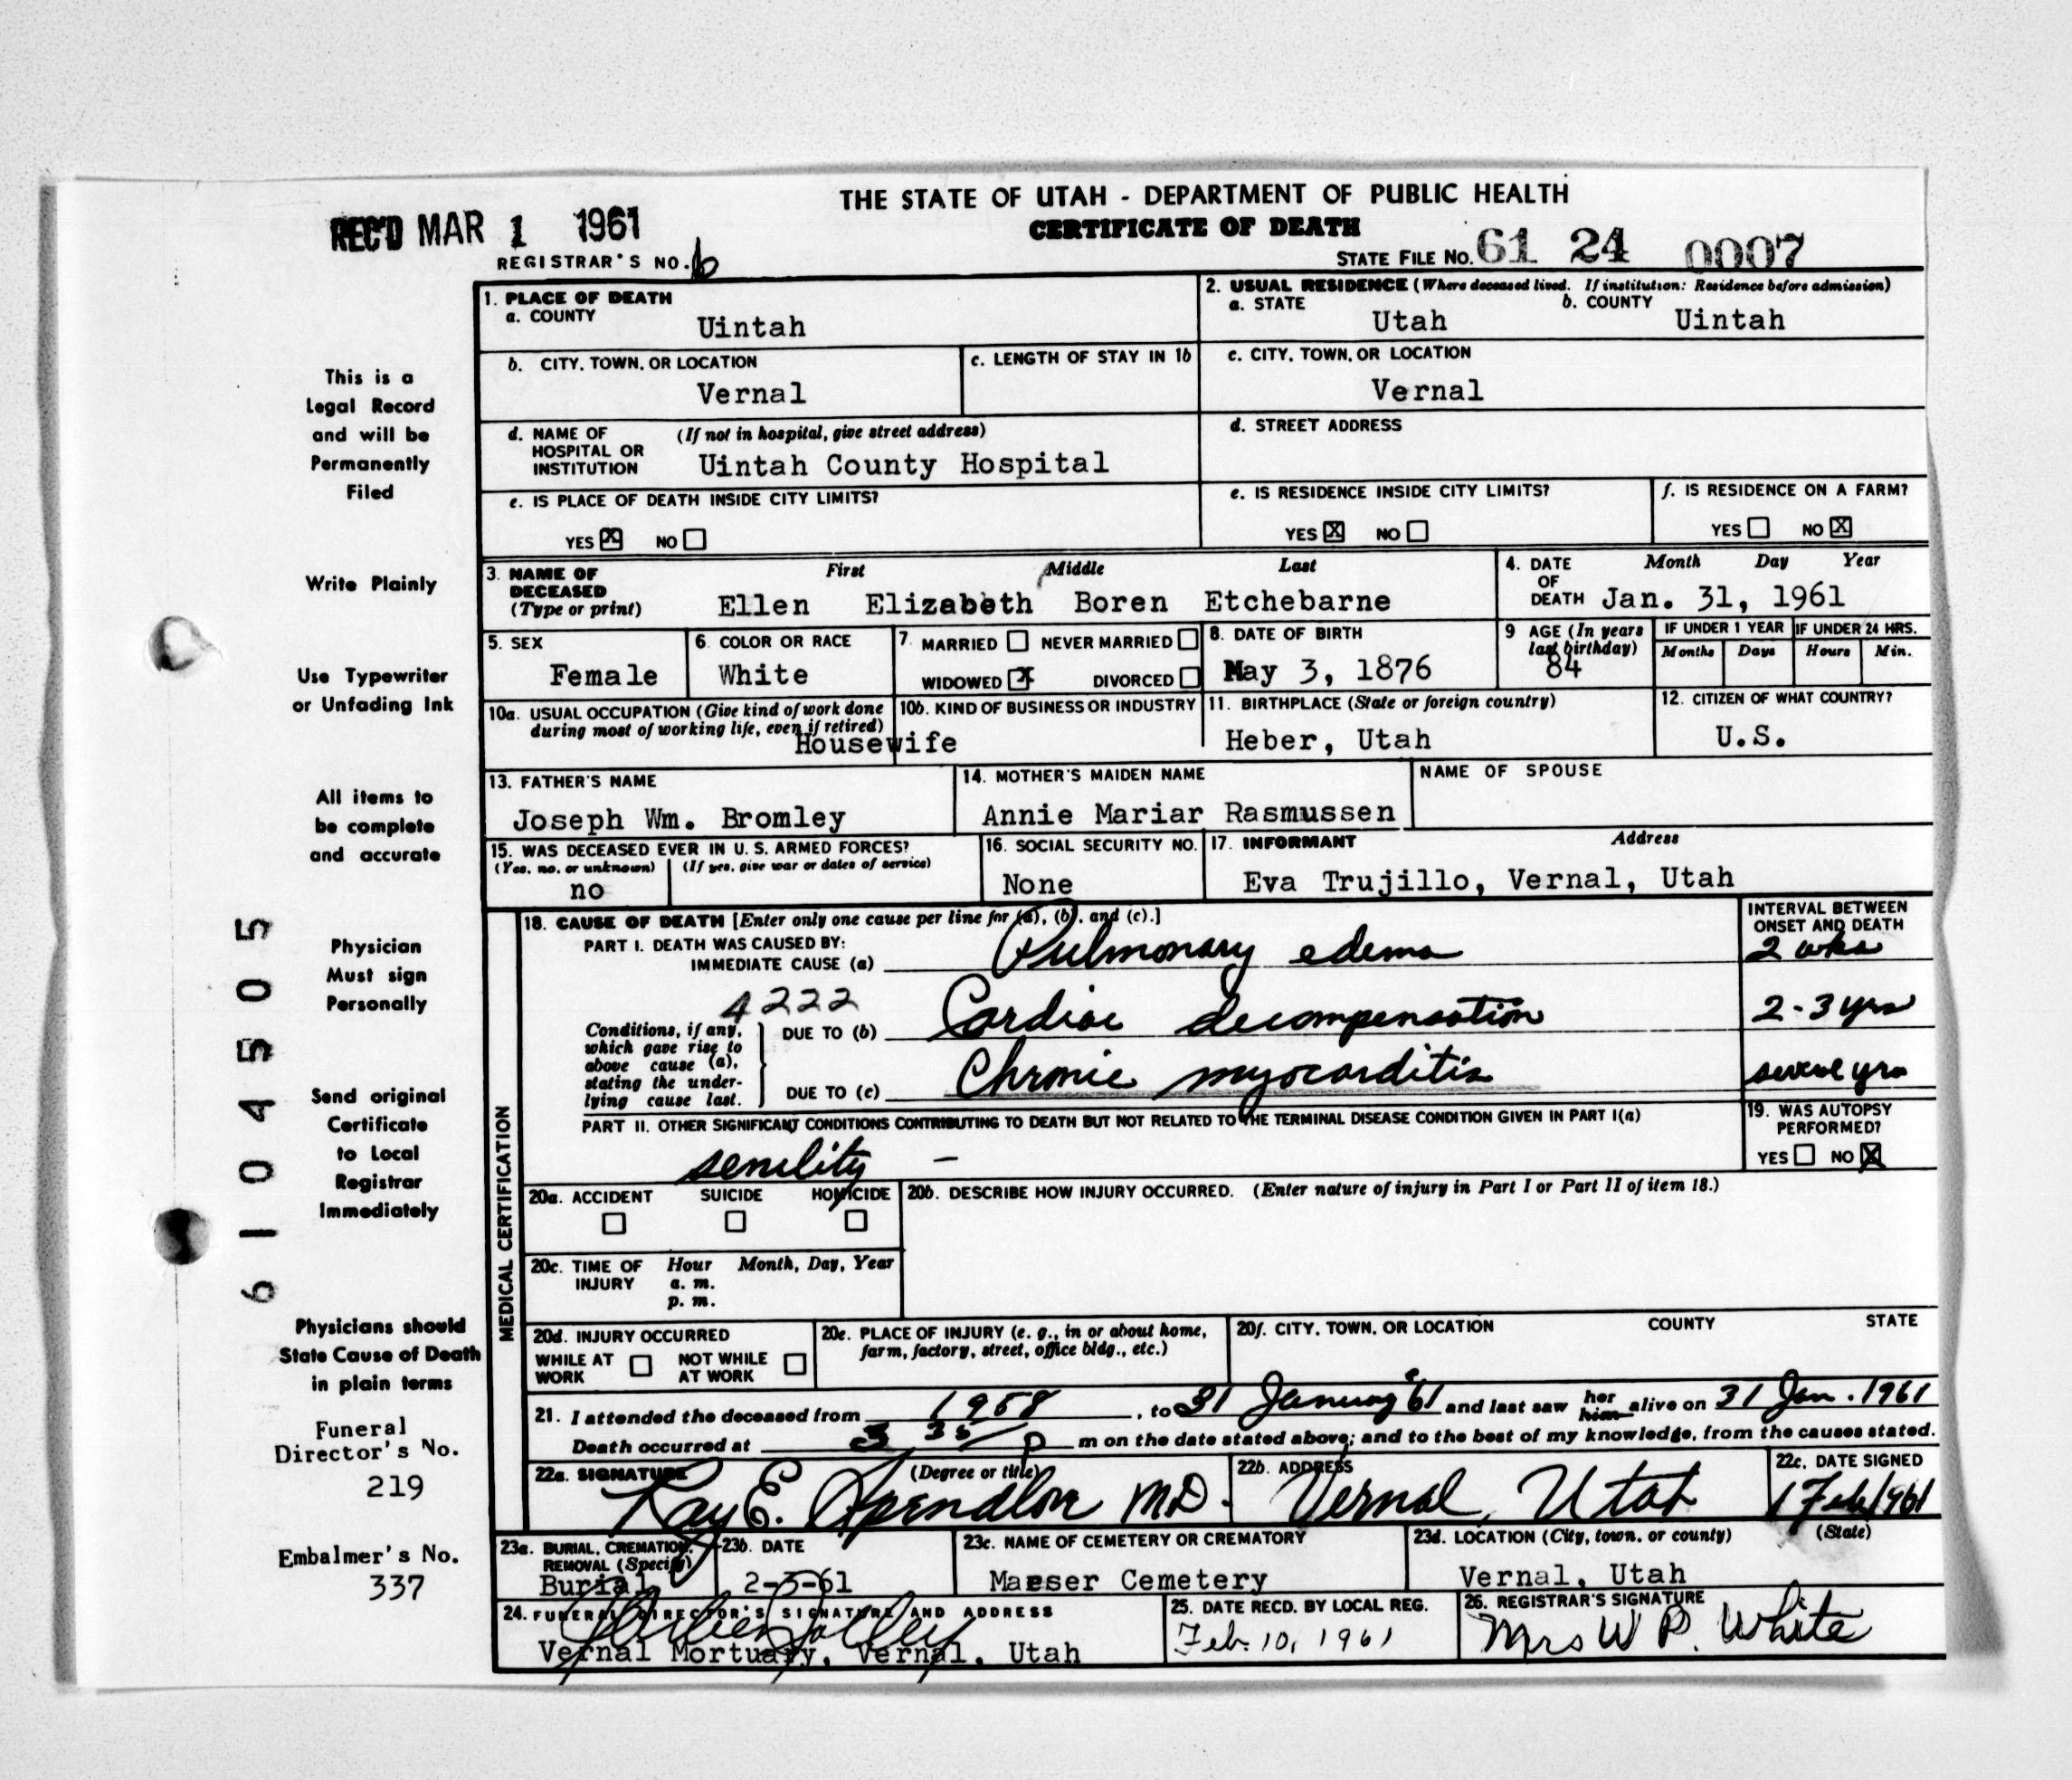 THE STATE OF UTAH - DEPARTMENT OF PUBLIC HEALTH
CERTIFICATE OF DEATH
REC'D MAR 1 1961
REGISTRAR'S NO. 6
STATE FILE NO. 61 24 0007
1. PLACE OF DEATH
a. COUNTY
Uintah
2. USUAL RESIDENCE (Where deceased lived. If institution: Residence before admission)
a. STATE b. COUNTY
Utah Uintah
b. CITY, TOWN, OR LOCATION
Vernal
c. LENGTH OF STAY IN 1b
c. CITY, TOWN, OR LOCATION
Vernal
d. NAME OF HOSPITAL OR INSTITUTION
(If not in hospital, give street address)
Uintah County Hospital
d. STREET ADDRESS
e. IS PLACE OF DEATH INSIDE CITY LIMITS?
YES X NO
e. IS RESIDENCE INSIDE CITY LIMITS?
YES X NO
f. IS RESIDENCE ON A FARM?
YES NO X
3. NAME OF DECEASED
(Type or print)
First Middle Last
Ellen Elizabeth Boren Etchebarne
4. DATE OF DEATH
Month Day Year
Jan. 31, 1961
5. SEX
Female
6. COLOR OR RACE
White
7. MARRIED NEVER MARRIED
WIDOWED X DIVORCED
8. DATE OF BIRTH
May 3, 1876
9 AGE (In years last birthday)
84
IF UNDER 1 YEAR
Months Days
IF UNDER 24 HRS.
Hours Min.
10a. USUAL OCCUPATION (Give kind of work done during most of working life, even if retired)
Housewife
10b. KIND OF BUSINESS OR INDUSTRY
11. BIRTHPLACE (State or foreign country)
Heber, Utah
12. CITIZEN OF WHAT COUNTRY?
U.S.
13. FATHER'S NAME
Joseph Wm. Bromley
14. MOTHER'S MAIDEN NAME
Annie Mariar Rasmussen
NAME OF SPOUSE
15. WAS DECEASED EVER IN U. S. ARMED FORCES?
(Yes, no, or unknown) (If yes, give war or dates of service)
no
16. SOCIAL SECURITY NO.
None
17. INFORMANT Address
Eva Trujillo, Vernal, Utah
MEDICAL CERTIFICATION
18. CAUSE OF DEATH [Enter only one cause per line for (a), (b), and (c).]
INTERVAL BETWEEN ONSET AND DEATH
PART I. DEATH WAS CAUSED BY:
IMMEDIATE CAUSE (a) Pulmonary edema 2 wks
4222
Conditions, if any, which gave rise to above cause (a), stating the underlying cause last.
DUE TO (b) Cardiac decompensation 2-3 yrs
DUE TO (c) Chronic myocarditis several yrs
PART II. OTHER SIGNIFICANT CONDITIONS CONTRIBUTING TO DEATH BUT NOT RELATED TO THE TERMINAL DISEASE CONDITION GIVEN IN PART I(a)
senility -
19. WAS AUTOPSY PERFORMED?
YES NO X
20a. ACCIDENT SUICIDE HOMICIDE
20b. DESCRIBE HOW INJURY OCCURRED. (Enter nature of injury in Part I or Part II of item 18.)
20c. TIME OF INJURY Hour Month, Day, Year
a. m.
p. m.
20d. INJURY OCCURRED
WHILE AT WORK NOT WHILE AT WORK
20e. PLACE OF INJURY (e. g., in or about home, farm, factory, street, office bldg., etc.)
20f. CITY, TOWN, OR LOCATION COUNTY STATE
21. I attended the deceased from 1958, to 31 January 61 and last saw her him alive on 31 Jan. 1961
Death occurred at 3 35 p m on the date stated above; and to the best of my knowledge, from the causes stated.
22a. SIGNATURE (Degree or title)
Ray E. Spendlove MD.
22b. ADDRESS
Vernal, Utah
22c. DATE SIGNED
1 Feb 1961
23a. BURIAL, CREMATION, REMOVAL (Specify)
Burial
23b. DATE
2-3-61
23c. NAME OF CEMETERY OR CREMATORY
Maeser Cemetery
23d. LOCATION (City, town, or county) (State)
Vernal, Utah
24. FUNERAL DIRECTOR'S SIGNATURE AND ADDRESS
Vernal Mortuary, Vernal, Utah
25. DATE RECD. BY LOCAL REG.
Feb. 10, 1961
26. REGISTRAR'S SIGNATURE
Mrs W P. White
This is a
Legal Record
and will be
Permanently
Filed
Write Plainly
Use Typewriter
or Unfading Ink
All items to
be complete
and accurate
Physician
Must sign
Personally
Send original
Certificate
to Local
Registrar
Immediately
Physicians should
State Cause of Death
in plain terms
Funeral
Director's No.
219
Embalmer's No.
337
6104505